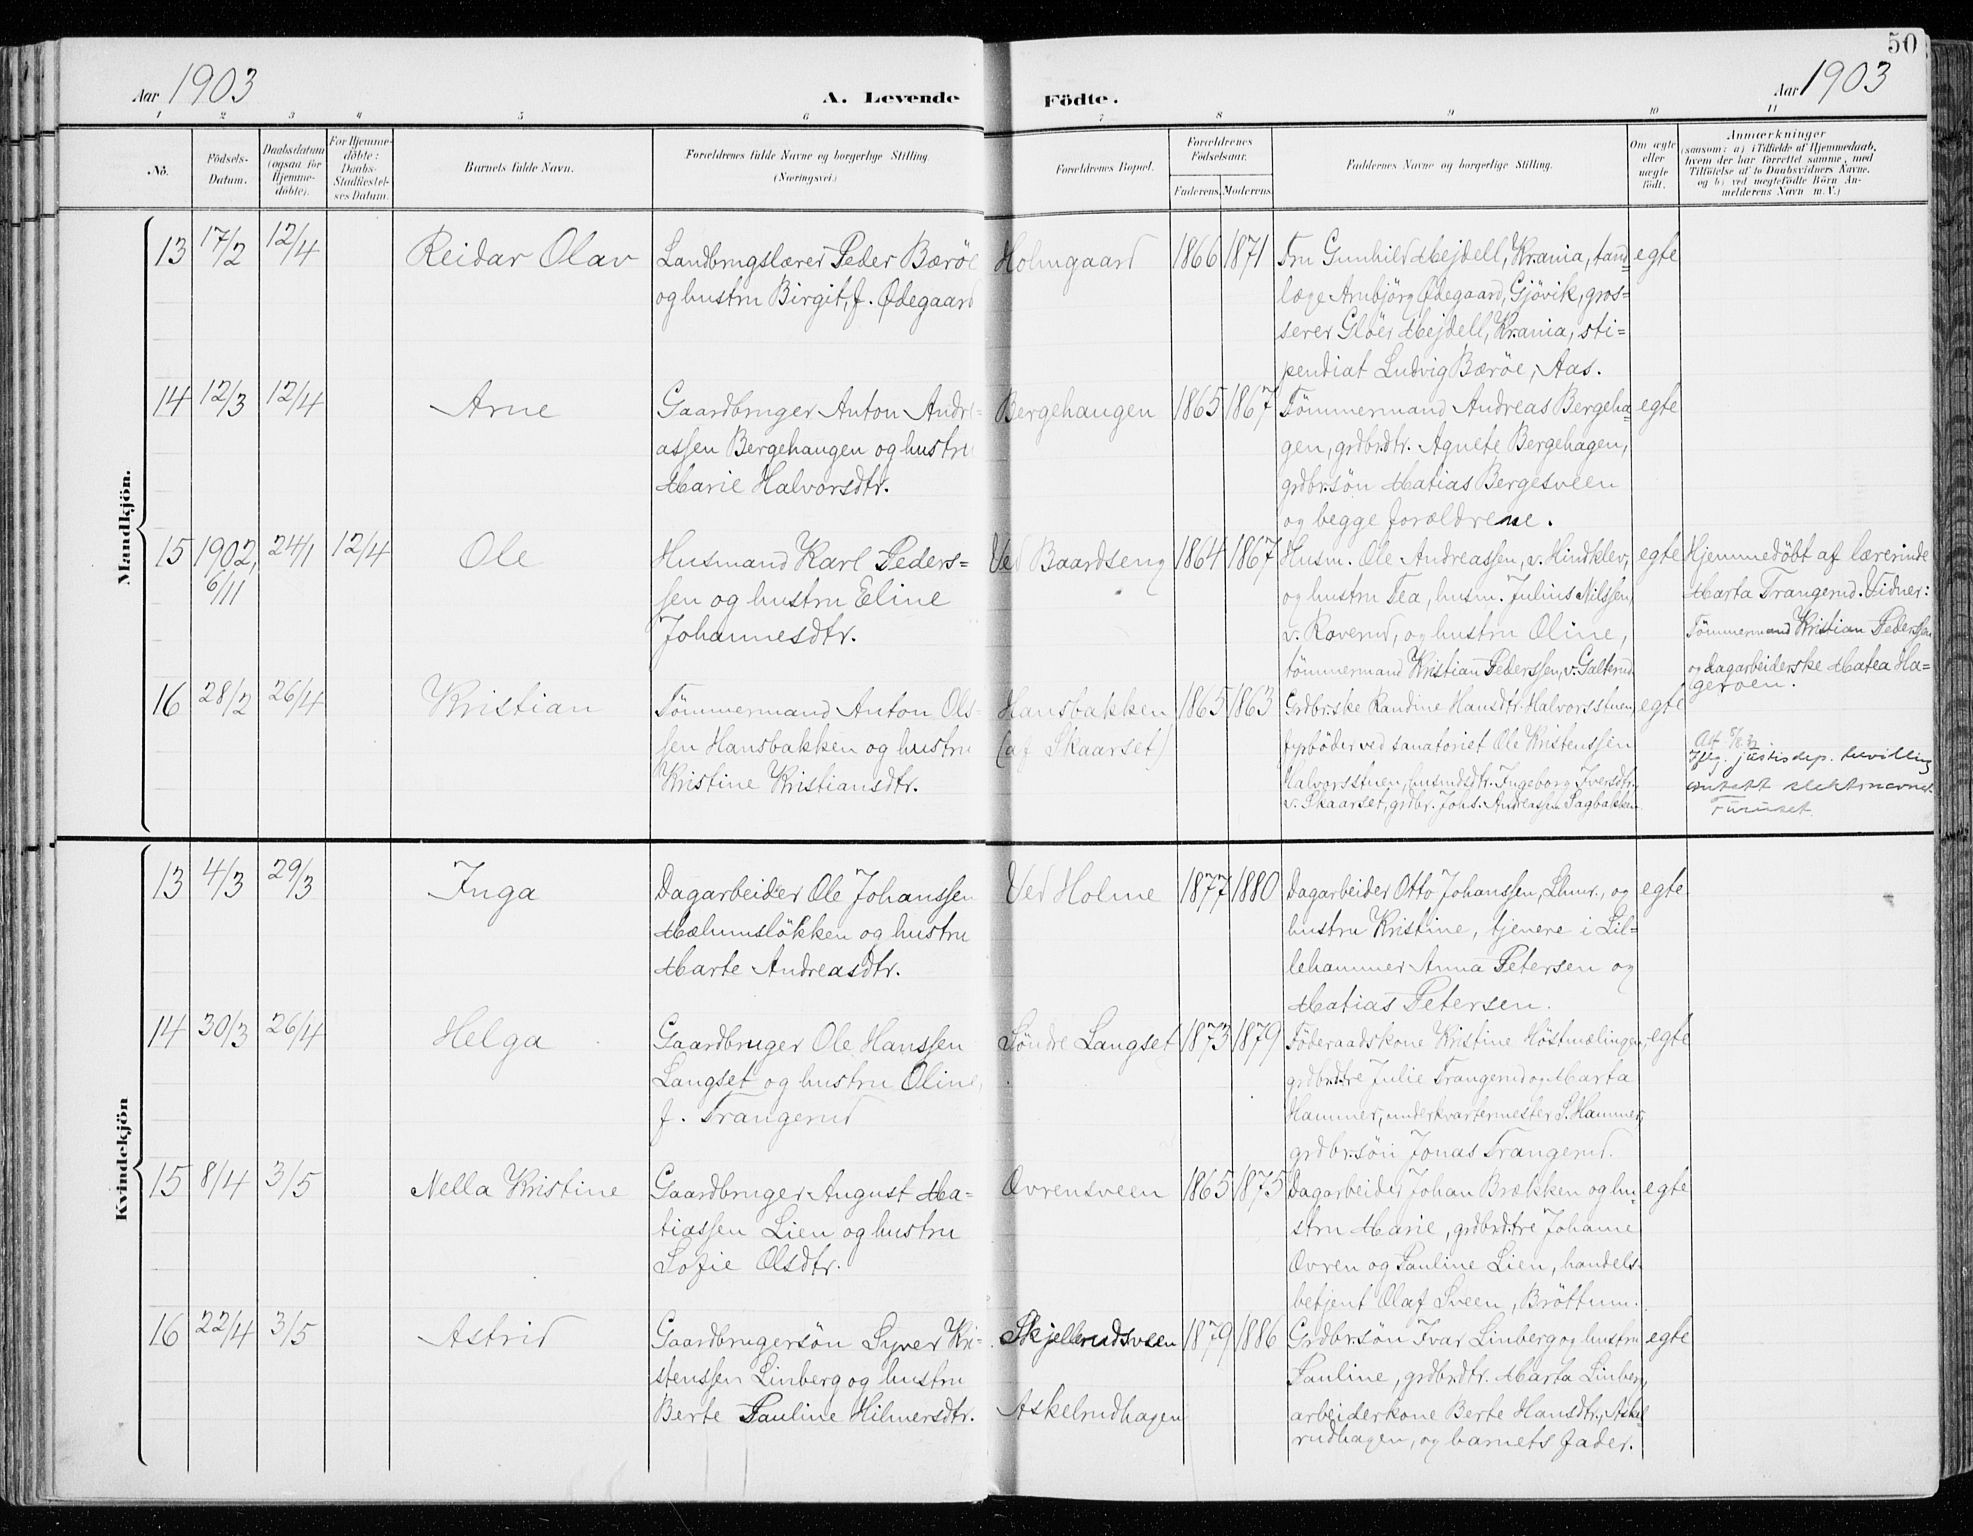 50
Aar 1903
A. Levende Födte.
Aar 1903
1 2 3 4 5 6 7 8 9 10 11
No.
Födsels-
Datum.
Daabsdatum
(ogsaa for
Hjemme-
döbte).
For Hjemme-
döbte:
Daabs-
Stadfæstel-
ses Datum.
Barnets fulde Navn.
Forældrenes fulde Navne og borgerlige Stilling.
(Næringsvei.)
Forældrenes Bopæl.
Forældrenes
Födselsaar.
Faderens. Moderens.
Faddernes Navne og borgerlige Stilling.
Om ægte
eller
uægte
født.
Anmærkninger
(saasom: a) i Tilfælde af Hjemmedaab,
hvem der har forrettet samme, med
Tilföielse af to Daabsvidners Navne.
og b) ved uegtefödte Börn An-
melderens Navn m. V.)
Mandkjön.
13 17/2 12/4 Reidar Olav
Landbrugslærer Peder Bæröe
og hustru Birgit, f. Ødegaard
Holmgaard 1866 1871
Fru Gunhild Mejdell, Kr.ania, tand=
læge Arnbjörg Ødegaard, Gjövik, gros=
serer Glöer Mejdell, Kr.ania, sti=
pendiat Ludvig Bæröe, Aas.
egte
14 12/3 12/4 Arne
Gaardbruger Anton Andre=
assen Bergehaugen og hustru
Marie Halvorsdtr.
Bergehaugen 1865 1867
Tömmermand Andreas Bergeha=
gen, grdbrdtr. Agnete Bergehagen,
grdbr.sön Matias Bergesveen
og begge forældrene.
egte
15 1902, 6/11 24/1 12/4 Ole
Husmand Karl Peders=
sen og hustru Eline
Johannesdtr.
Ved Baardseng 1864 1867
Husm. Ole Andreassen, v. Hindklev,
og hustru Tea, husm. Julius Nilssen,
v. Roverud, og hustru Oline,
tömmermand Kristian Pederssen, v. Galterud
egte
Hjemmedöbt af lærerinde
Marta Trangerud. Vidner:
Tömmermand Kristian Pederssen
og dagarbeiderske Matea Ha=
geroen.
16 28/2 26/4 Kristian
Tömmermand Anton Ols=
sen Hansbakken og hustru
Kristine Kristiansdtr.
Hansbakken
(af Skaarset)
1865 1863
Grdbr.ske Randine Hansdtr. Halvorsstuen,
fyrböder ved sanatoriet Ole Kristenssen
Halvorsstuen, husmdsdtr. Ingeborg Iversdtr.
v. Skaarset, grdbr. Johs. Andreassen Sagbakken
egte
Iflg. justisdep. bevilling
antatt slektsnavnet
Furuset
Kvindekjön
13 4/3 29/3 Inga
Dagarbeider Ole Johanssen
Mælumslökken og hustru
Marte Andreasdtr.
Ved Holme 1877 1880
Dagarbeider Otto Johanssen, Lhmr., og
hustru Kristine, tjenere i Lil=
lehammer Anna Petersen og
Matias Petersen.
egte
14 30/3 26/4 Helga
Gaardbruger Ole Hanssen
Langset og hustru Oline,
f. Trangerud
Söndre Langset 1873 1879
Föderaadskone Kristine Höstmælingen,
grdbrdtre Julie Trangerud og Marta
Hammer, underkvartermester S. Hammer,
grdbr.sön Jonas Trangerud.
egte
15 8/4 3/5 Nella Kristine
Gaardbruger August Ma=
tiassen Lien og hustru
Sofie Olsdtr.
Ovrensveen 1865 1875
Dagarbeider Johan Brækken og hu=
stru Marie, grdbrdtre Johanne
Ovren og Pauline Lien, handels=
betjent Olaf Sveen, Bröttum.
egte
16 22/4 3/5 Astrid
Gaardbrugersön Syver Kri=
stenssen Linberg og hustru
Berte Pauline Hilmersdtr.
Skjellerudsveen
Askelrudhagen
1879 1886
Grdbr.sön Ivar Linberg og hustru
Pauline, grdbrdtr. Marta Linberg,
arbeiderkone Berte Hansdtr., Askel
rudhagen, og barnets fader.
egte